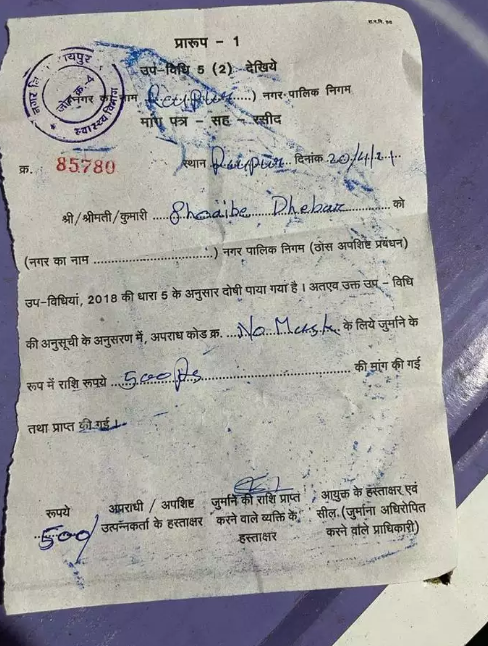 प्रारूप - 1
उप-विधि 5 (2) देखिये
(नगर का नाम Raipur....) नगर-पालिक निगम
मांग पत्र - सह - रसीद
क्र. 85780 स्थान Raipur.. दिनांक 20/4/21
श्री/श्रीमती/कुमारी .... Shoaibe Dhebar को
(नगर का नाम ..............................) नगर पालिक निगम (ठोस अपशिष्ट प्रबंधन)
उप-विधियां, 2018 की धारा 5 के अनुसार दोषी पाया गया है। अतएव उक्त उप - विधि
की अनुसूची के अनुसरण में, अपराध कोड क्र. ...No Mask. के लिये जुर्माने के
रूप में राशि रूपये ...500 Rs .............................. की मांग की गई
तथा प्राप्त की गई।
रूपये
500/
अपराधी / अपशिष्ट
उत्पन्नकर्ता के हस्ताक्षर
जुर्माने की राशि प्राप्त
करने वाले व्यक्ति के
हस्ताक्षर
आयुक्त के हस्ताक्षर एवं
सील (जुर्माना अधिरोपित
करने वाले प्राधिकारी)